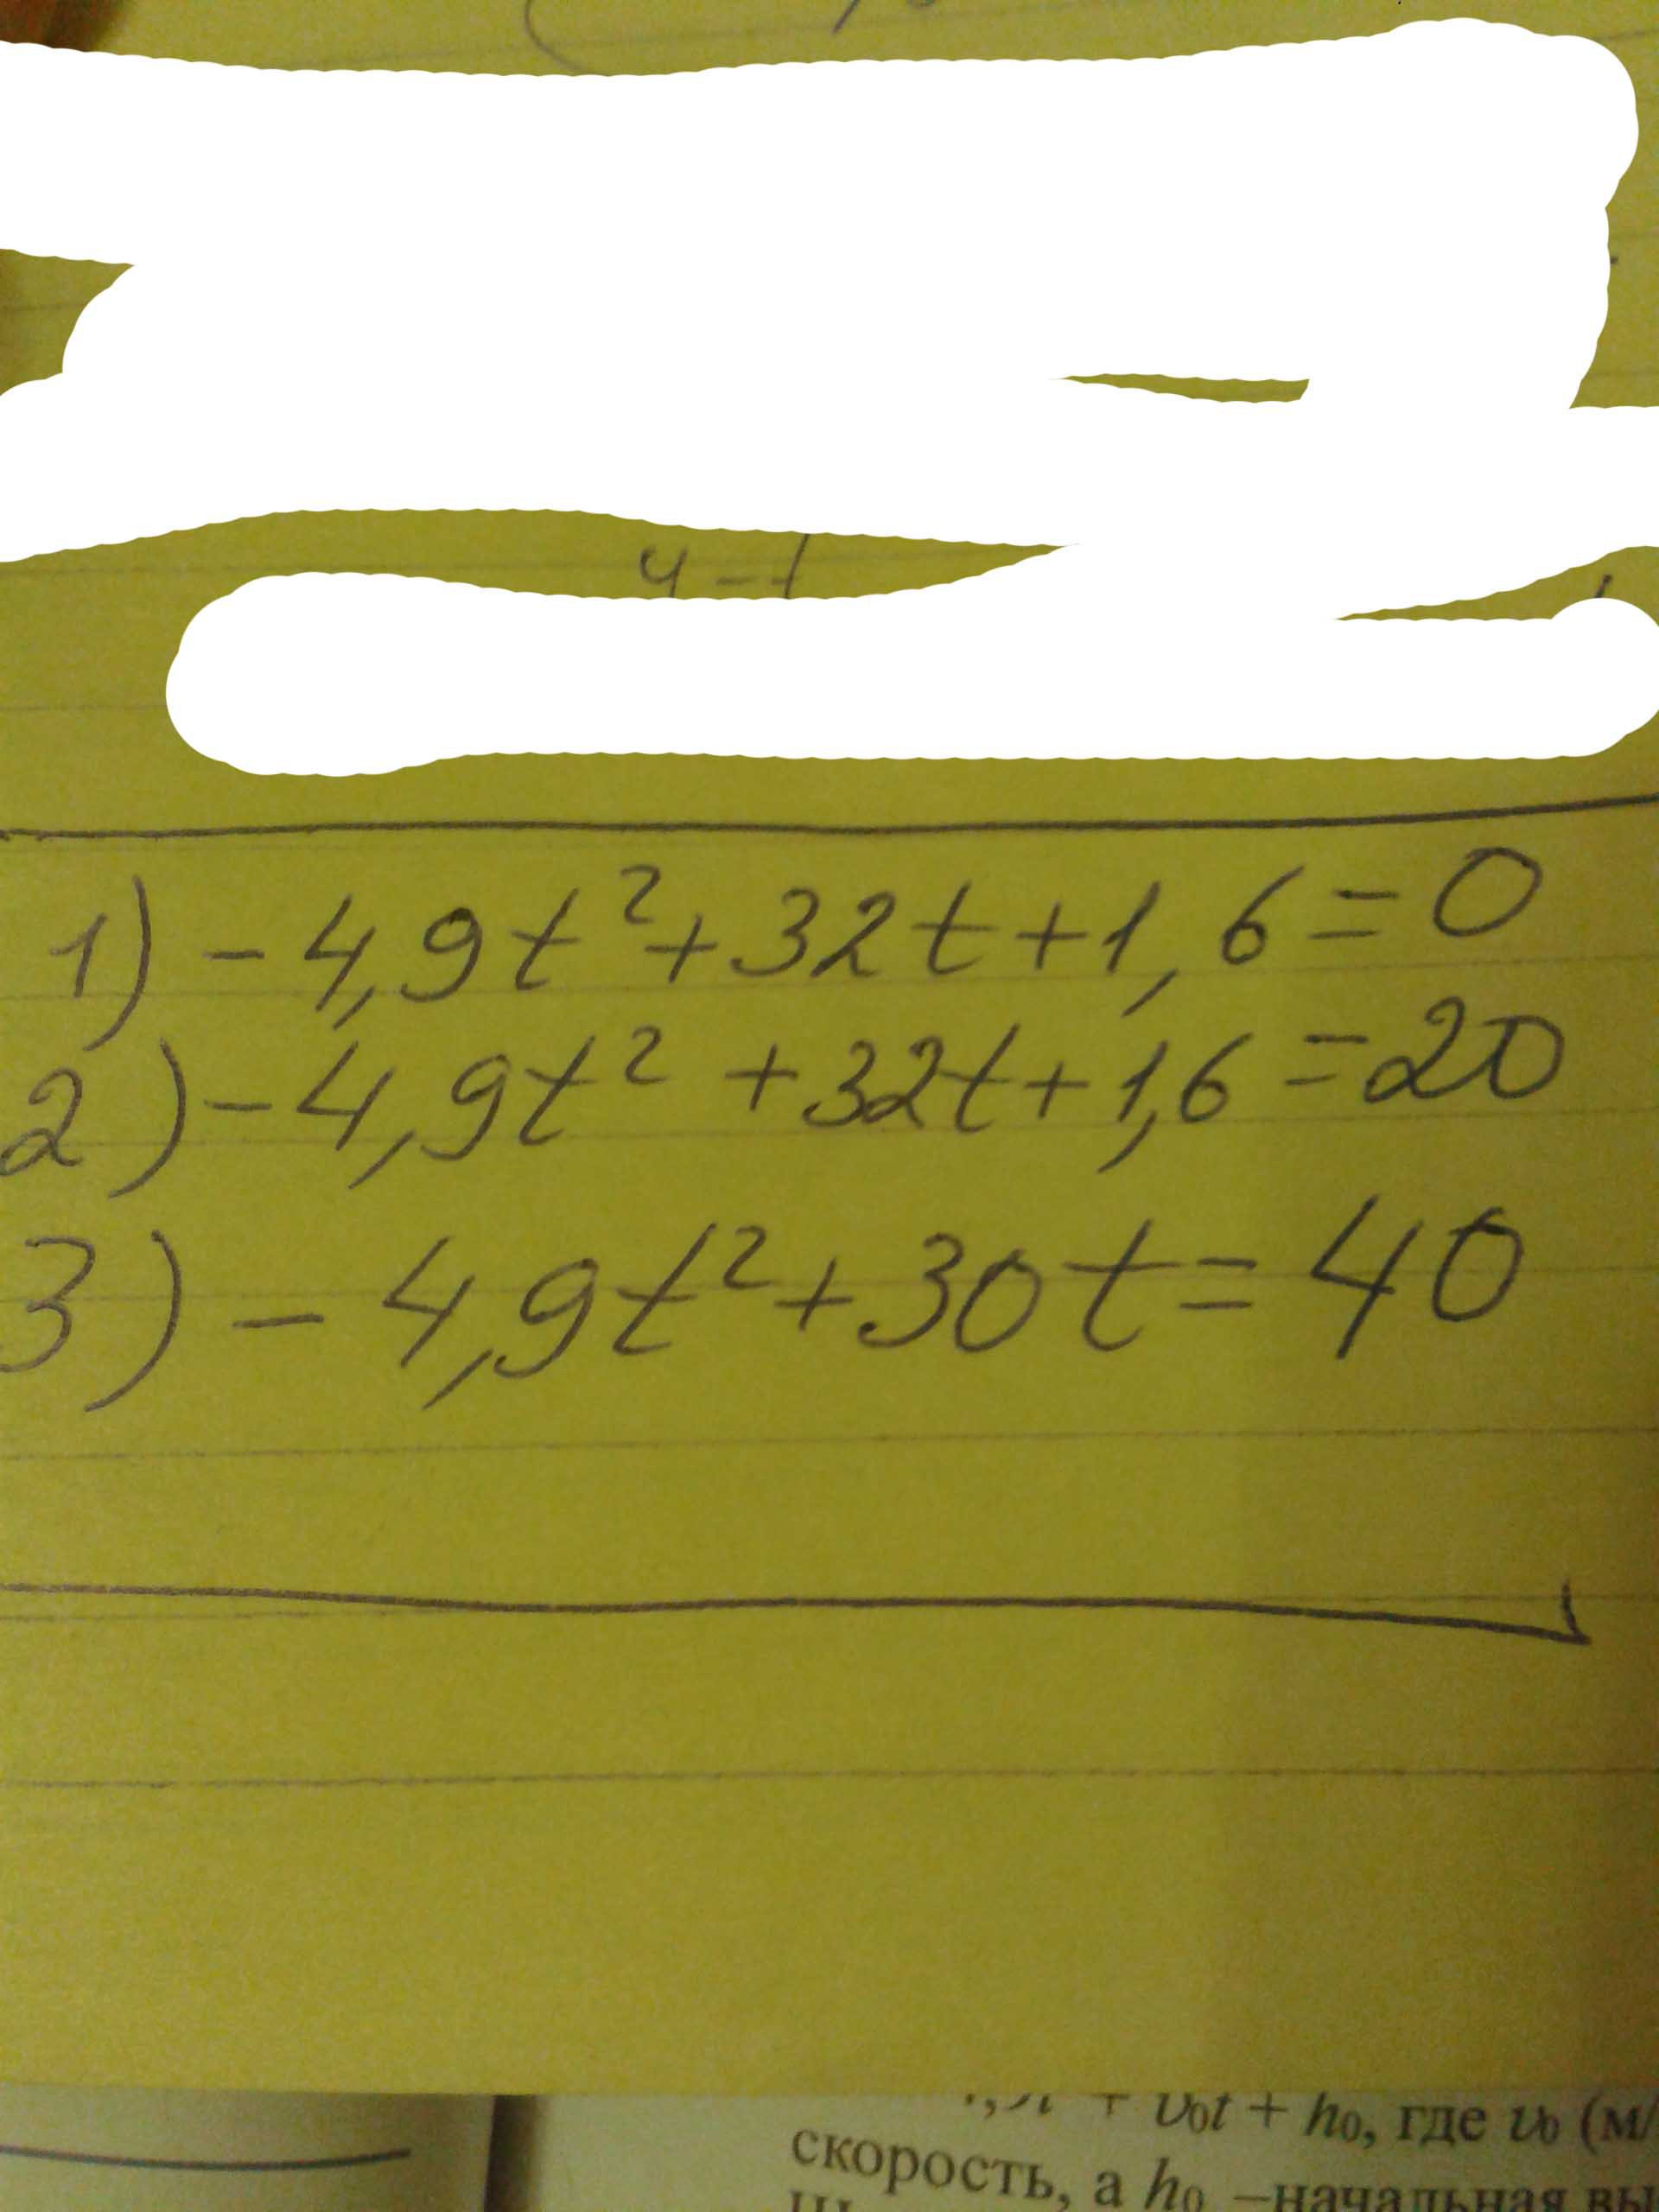 4-1
1) -4,9t²+32t+1,6=0
2) -4,9t² +32t+1,6=20
3) -4,9t²+30t=40
+ v₀t + h₀, где v₀ (м/
скорость, а h₀ –начальная вы